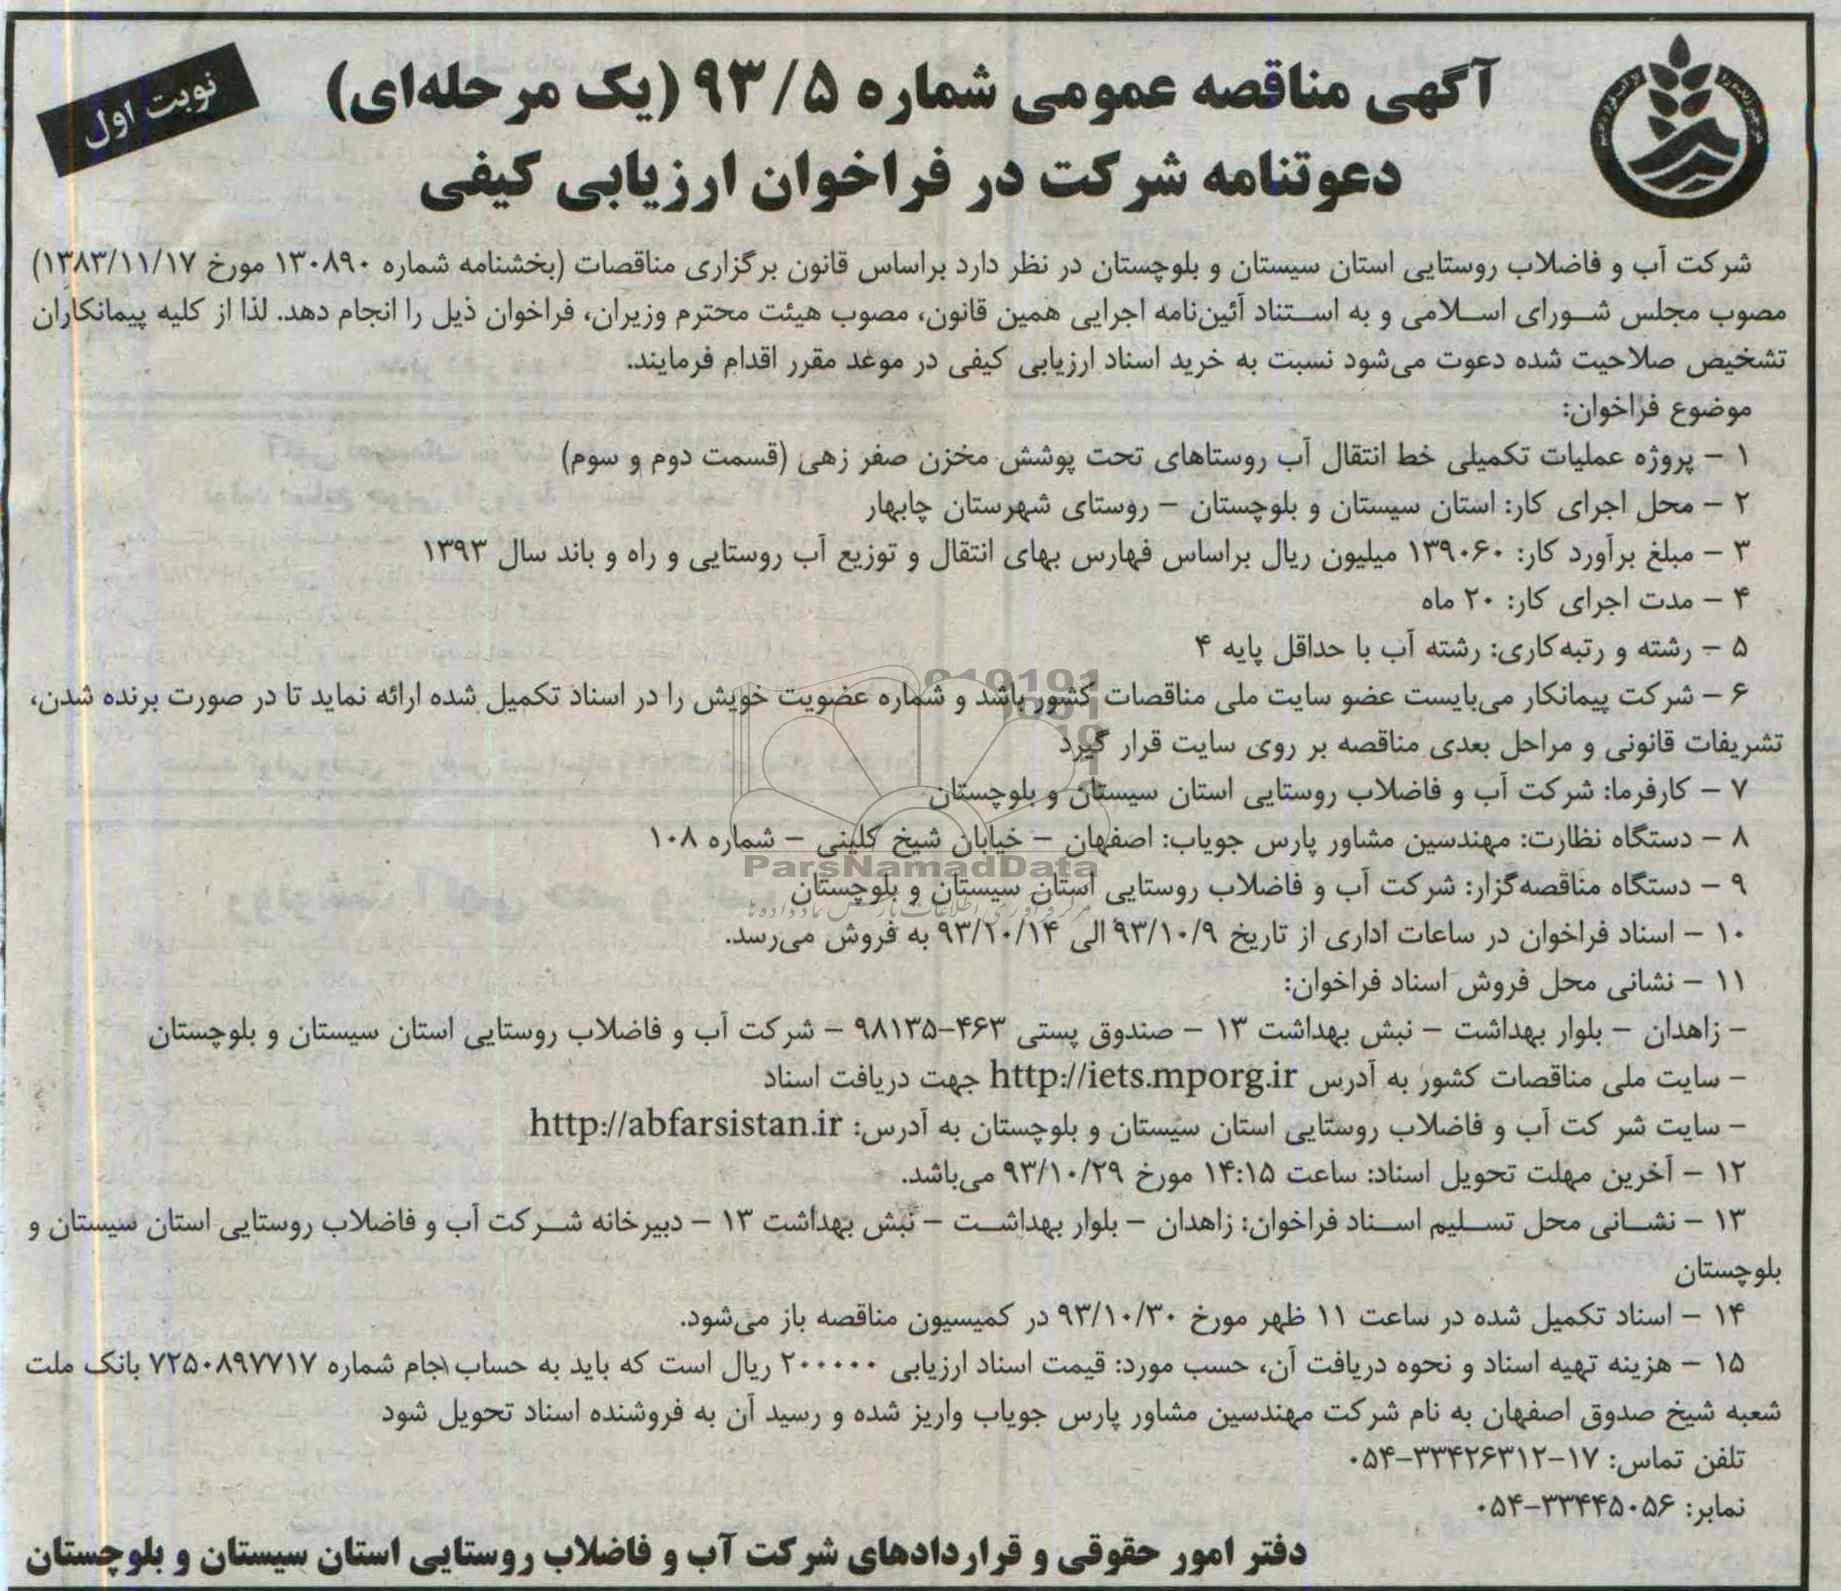 آگهی مناقصه عمومی شماره ۹۳/۵ (یک مرحله‌ای)
نوبت اول
دعوتنامه شرکت در فراخوان ارزیابی کیفی
شرکت آب و فاضلاب روستایی استان سیستان و بلوچستان در نظر دارد براساس قانون برگزاری مناقصات (بخشنامه شماره ۱۳۰۸۹۰ مورخ ۱۳۸۳/۱۱/۱۷)
مصوب مجلس شورای اسلامی و به استناد آئین‌نامه اجرایی همین قانون، مصوب هیئت محترم وزیران، فراخوان ذیل را انجام دهد. لذا از کلیه پیمانکاران
تشخیص صلاحیت شده دعوت می‌شود نسبت به خرید اسناد ارزیابی کیفی در موعد مقرر اقدام فرمایند.
موضوع فراخوان:
۱ – پروژه عملیات تکمیلی خط انتقال آب روستاهای تحت پوشش مخزن صفر زهی (قسمت دوم و سوم)
۲ – محل اجرای کار: استان سیستان و بلوچستان – روستای شهرستان چابهار
۳ – مبلغ برآورد کار: ۱۳۹۰۶۰ میلیون ریال براساس فهارس بهای انتقال و توزیع آب روستایی و راه و باند سال ۱۳۹۳
۴ – مدت اجرای کار: ۲۰ ماه
۵ – رشته و رتبه کاری: رشته آب با حداقل پایه ۴
۶ – شرکت پیمانکار می‌بایست عضو سایت ملی مناقصات کشور باشد و شماره عضویت خویش را در اسناد تکمیل شده ارائه نماید تا در صورت برنده شدن،
تشریفات قانونی و مراحل بعدی مناقصه بر روی سایت قرار گیرد
۷ – کارفرما: شرکت آب و فاضلاب روستایی استان سیستان و بلوچستان
۸ – دستگاه نظارت: مهندسین مشاور پارس جویاب: اصفهان – خیابان شیخ کلینی – شماره ۱۰۸
ParsNamadData
۹ – دستگاه مناقصه‌گزار: شرکت آب و فاضلاب روستایی استان سیستان و بلوچستان
۱۰ – اسناد فراخوان در ساعات اداری از تاریخ ۹۳/۱۰/۹ الی ۹۳/۱۰/۱۴ به فروش می‌رسد.
۱۱ – نشانی محل فروش اسناد فراخوان:
– زاهدان – بلوار بهداشت – نبش بهداشت ۱۳ – صندوق پستی ۴۶۳–۹۸۱۳۵ – شرکت آب و فاضلاب روستایی استان سیستان و بلوچستان
– سایت ملی مناقصات کشور به آدرس http://iets.mporg.ir جهت دریافت اسناد
– سایت شر کت آب و فاضلاب روستایی استان سیستان و بلوچستان به آدرس: http://abfarsistan.ir
۱۲ – آخرین مهلت تحویل اسناد: ساعت ۱۴:۱۵ مورخ ۹۳/۱۰/۲۹ می‌باشد.
۱۳ – نشانی محل تسلیم اسناد فراخوان: زاهدان – بلوار بهداشت – نبش بهداشت ۱۳ – دبیرخانه شرکت آب و فاضلاب روستایی استان سیستان و
بلوچستان
۱۴ – اسناد تکمیل شده در ساعت ۱۱ ظهر مورخ ۹۳/۱۰/۳۰ در کمیسیون مناقصه باز می‌شود.
۱۵ – هزینه تهیه اسناد و نحوه دریافت آن، حسب مورد: قیمت اسناد ارزیابی ۲۰۰۰۰۰ ریال است که باید به حساب جام شماره ۷۲۵۰۸۹۷۷۱۷ بانک ملت
شعبه شیخ صدوق اصفهان به نام شرکت مهندسین مشاور پارس جویاب واریز شده و رسید آن به فروشنده اسناد تحویل شود
تلفن تماس: ۱۷–۳۳۴۲۶۳۱۲–۰۵۴
نمابر: ۳۳۴۴۵۰۵۶–۰۵۴
دفتر امور حقوقی و قراردادهای شرکت آب و فاضلاب روستایی استان سیستان و بلوچستان